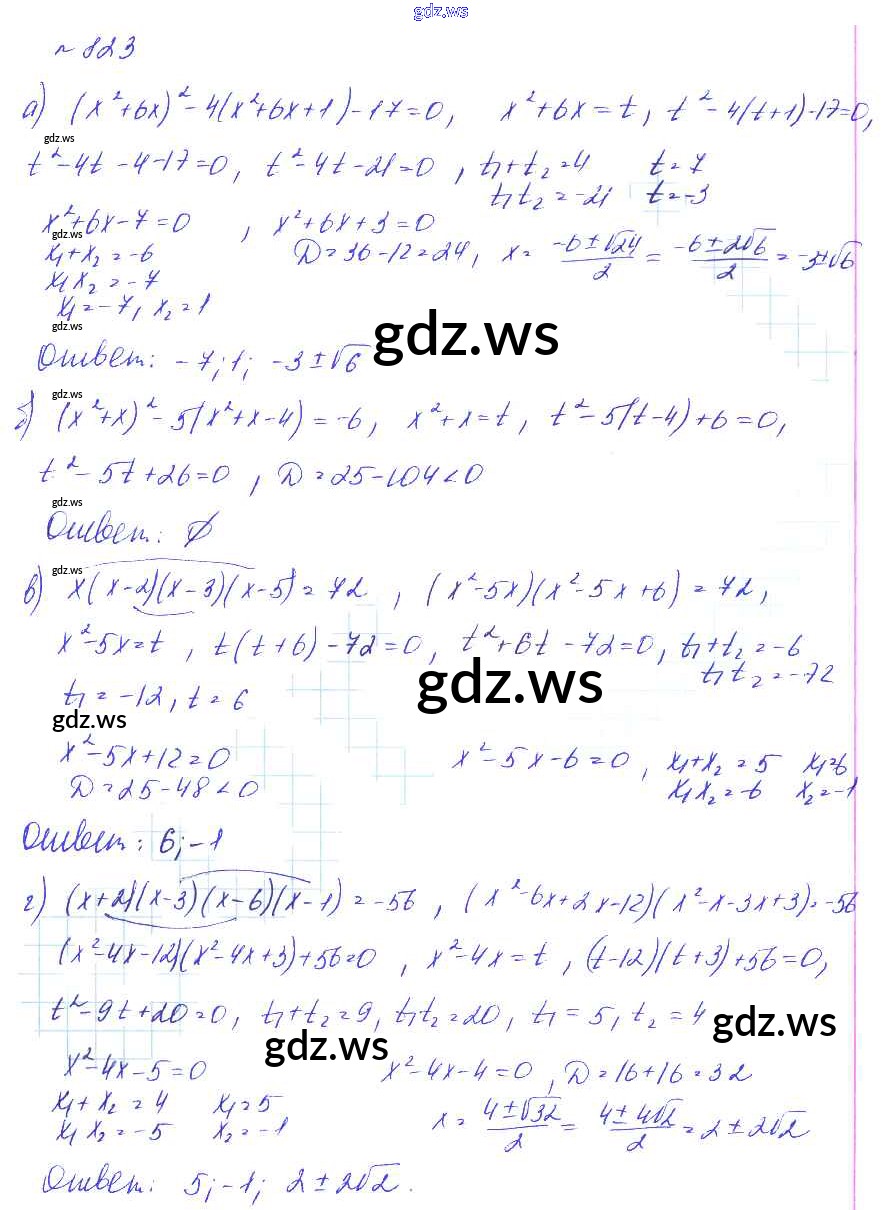 gdz.ws
№ 823
а) (x²+6x)²-4(x²+6x+1)-17=0, x²+6x=t, t²-4(t+1)-17=0,
gdz.ws
t²-4t-4-17=0, t²-4t-21=0, t₁+t₂=4 t=7
t₁t₂=-21 t=-3
x²+6x-7=0, x²+6x+3=0
gdz.ws
x₁+x₂=-6 D=36-12=24, x=(-6±√24)/2=(-6±2√6)/2=-3±√6
x₁x₂=-7
x₁=-7, x₂=1
gdz.ws
gdz.ws
Ответ: -7; 1; -3±√6
gdz.ws
б) (x²+x)²-5(x²+x-4)=-6, x²+x=t, t²-5(t-4)+6=0,
t²-5t+26=0, D=25-104<0
gdz.ws
Ответ: ∅
gdz.ws
в) x(x-2)(x-3)(x-5)=72, (x²-5x)(x²-5x+6)=72,
x²-5x=t, t(t+6)-72=0, t²+6t-72=0, t₁+t₂=-6
t₁t₂=-72
gdz.ws
t₁=-12, t=6
gdz.ws
x²-5x+12=0 x²-5x-6=0, x₁+x₂=5 x₁=6
D=25-48<0 x₁x₂=-6 x₂=-1
Ответ: 6; -1
г) (x+2)(x-3)(x-6)(x-1)=-56, (x²-6x+2x-12)(x²-x-3x+3)=-56
(x²-4x-12)(x²-4x+3)+56=0, x²-4x=t, (t-12)(t+3)+56=0,
t²-9t+20=0, t₁+t₂=9, t₁t₂=20, t₁=5, t₂=4
gdz.ws
gdz.ws
x²-4x-5=0 x²-4x-4=0, D=16+16=32
x₁+x₂=4 x₁=5 x=(4±√32)/2=(4±4√2)/2=2±2√2
x₁x₂=-5 x₂=-1
Ответ: 5; -1; 2±2√2.